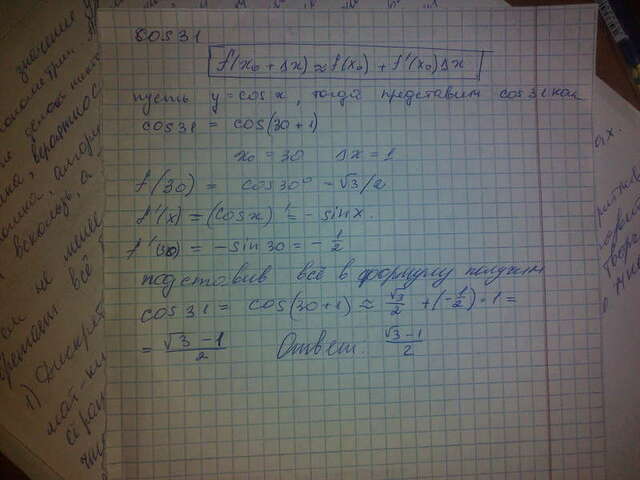 cos 31
f(x₀ + Δx) ≈ f(x₀) + f'(x₀)Δx
пусть y = cos x, тогда представим cos 31 как
cos 31 = cos(30+1)
x₀ = 30 Δx = 1
f(30) = cos 30° - √3/2
f'(x) = (cos x)' = - sin x.
f'(30) = - sin 30 = - 1/2
подставив всё в формулу получим
cos 31 = cos(30+1) ≈ √3/2 + (-1/2)·1 =
= √3 - 1/2 Ответ: √3 - 1/2
значение
вероятнос
не менее
всё
1) Дискрет